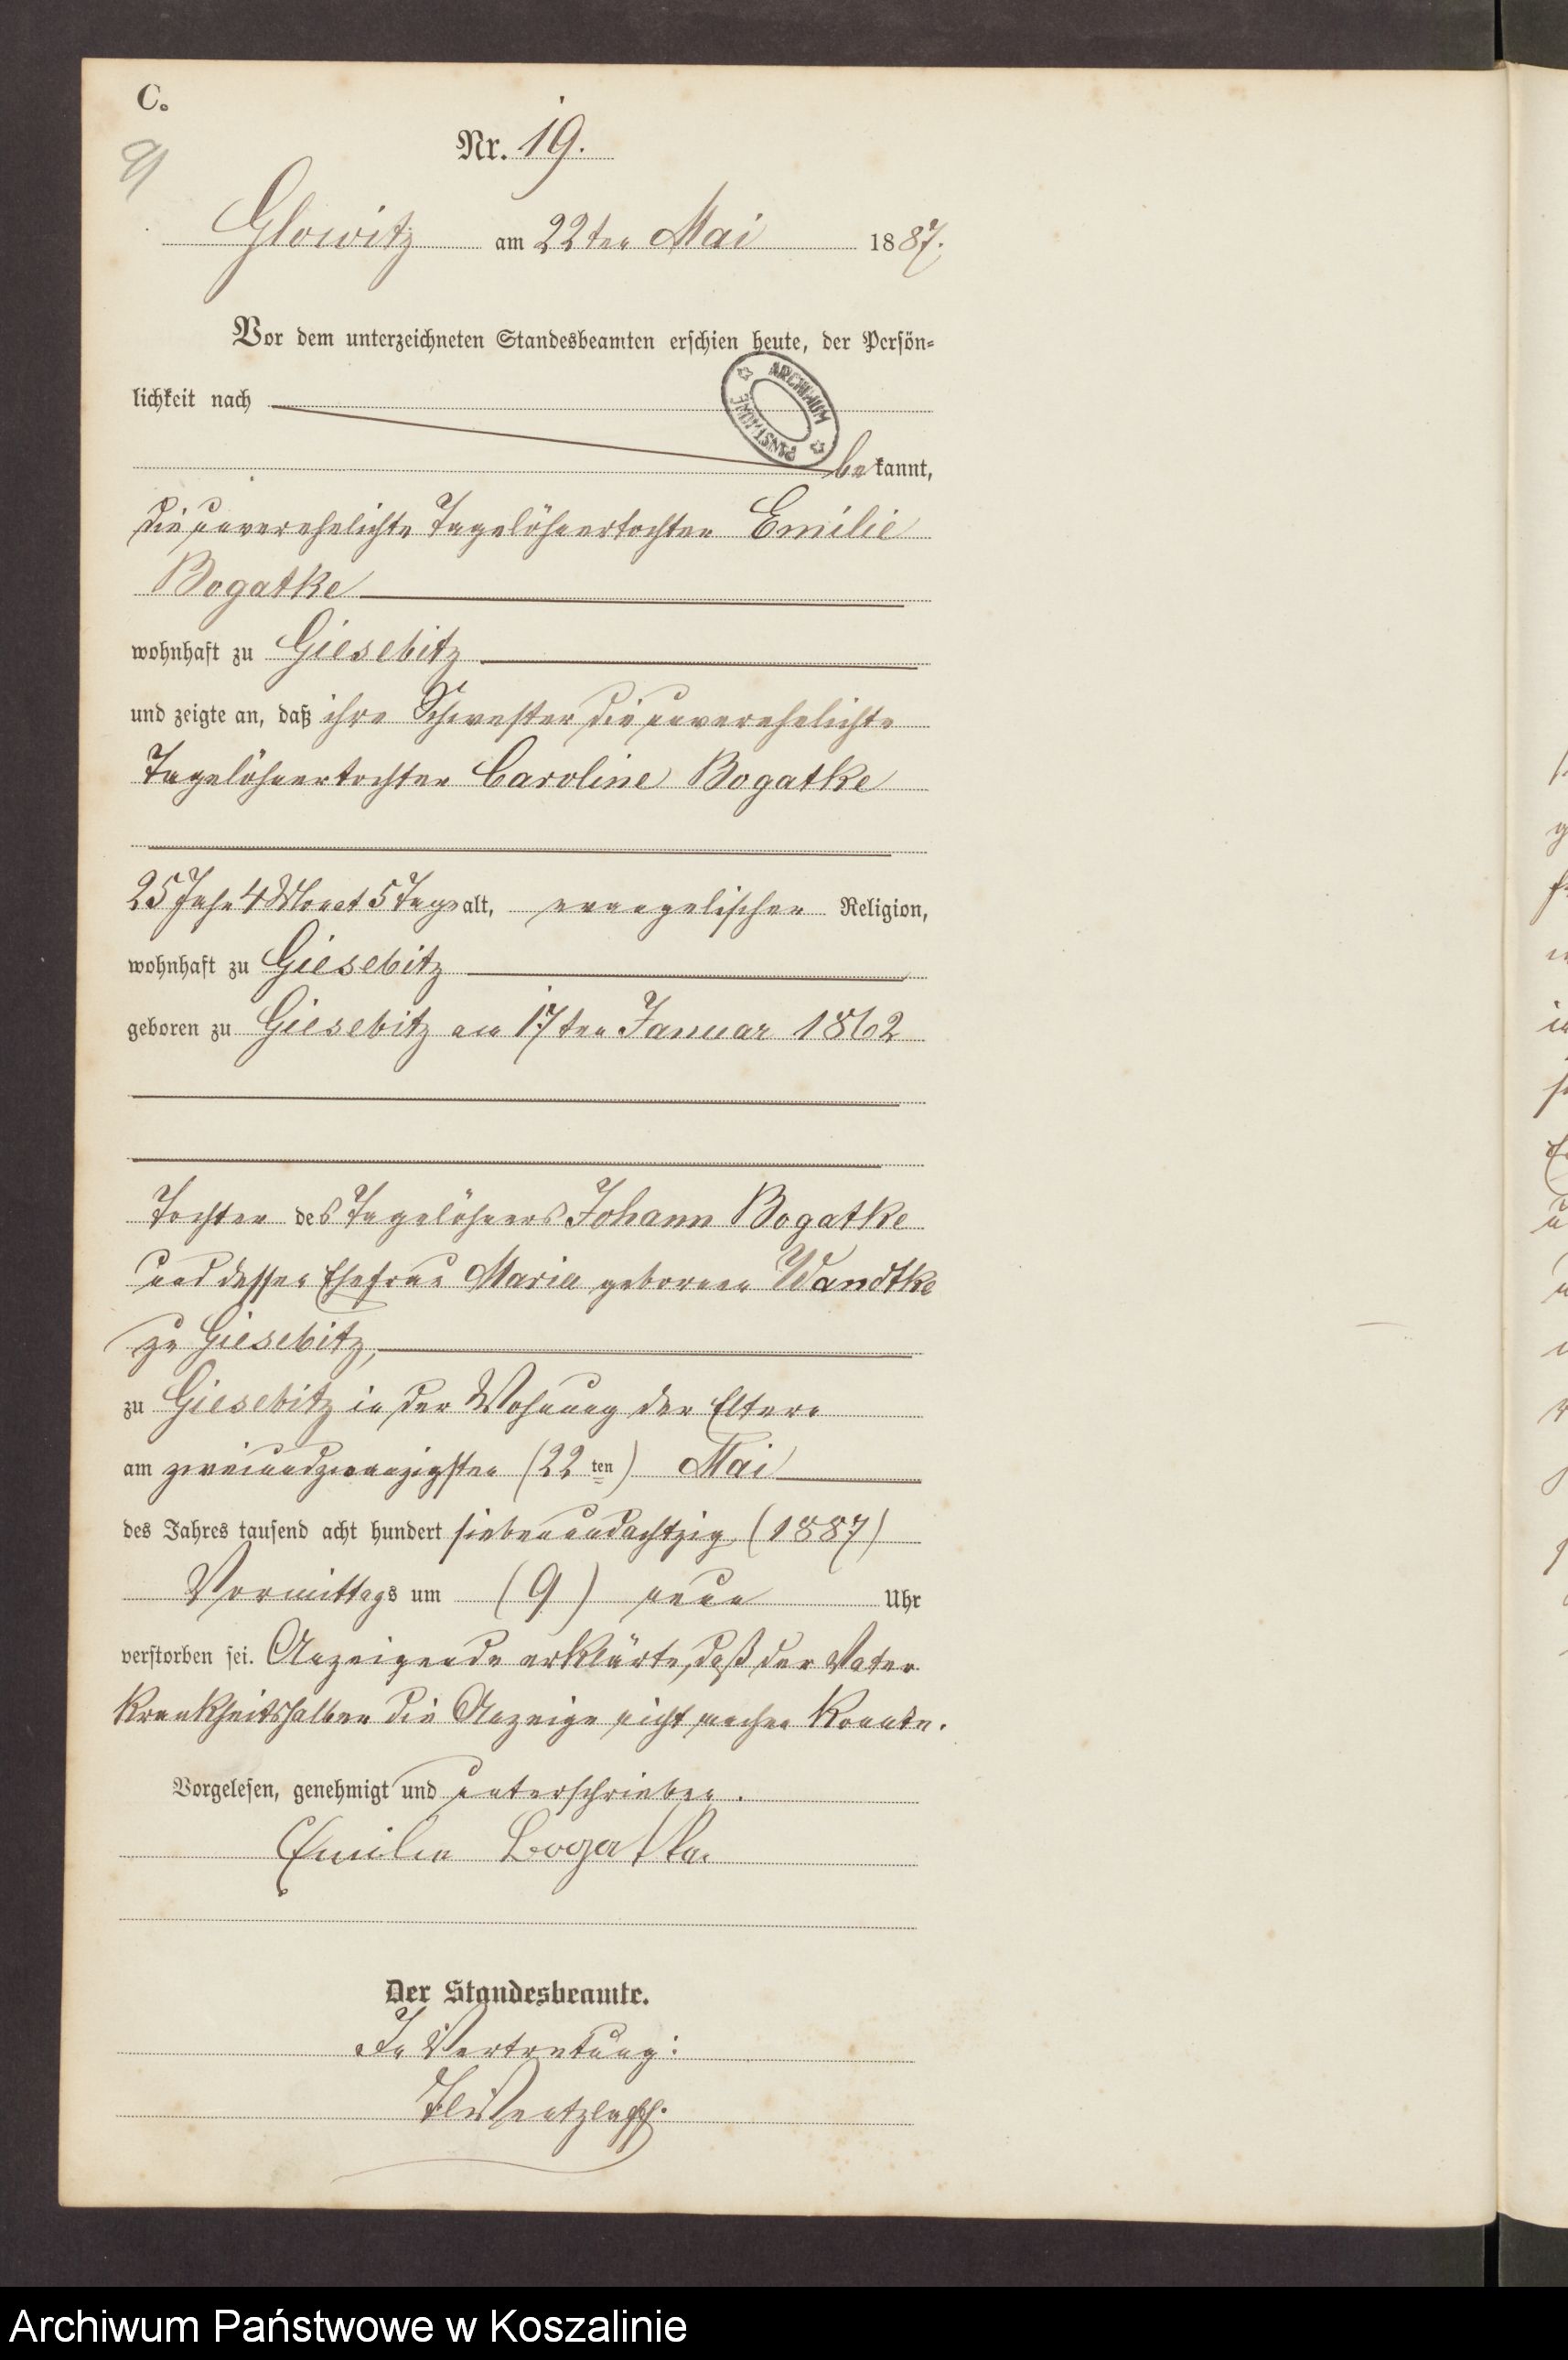 C.
9
Nr. 19.
Glowitz am 22ten Mai 1887.
Vor dem unterzeichneten Standesbeamten erschien heute, der Persön-
lichkeit nach
ARCHIWUM PAŃSTWOWE
bekannt,
die unverehelichte Tagelöhnertochter Emilie
Bogatke
wohnhaft zu Giesebitz
und zeigte an, daß ihre Schwester die unverehelichte
Tagelöhnertochter Caroline Bogatke
25 Jahr 4 Monat 5 Tage alt, evangelischer Religion,
wohnhaft zu Giesebitz
geboren zu Giesebitz am 17ten Januar 1862
Tochter des Tagelöhners Johann Bogatke
und dessen Ehefrau Maria geborenen Wandtke
zu Giesebitz,
zu Giesebitz in der Wohnung der Eltern
am zweiundzwanzigsten (22ten) Mai
des Jahres tausend acht hundert siebenundachtzig (1887)
Vormittags um (9) neun Uhr
verstorben sei. Anzeigende erklärte, daß der Vater
Krankheitshalber die Anzeige nicht machen konnte.
Vorgelesen, genehmigt und unterschrieben.
Emilie Bogatke.
Der Standesbeamte.
In Vertretung:
Wentzlaff.
Archiwum Państwowe w Koszalinie